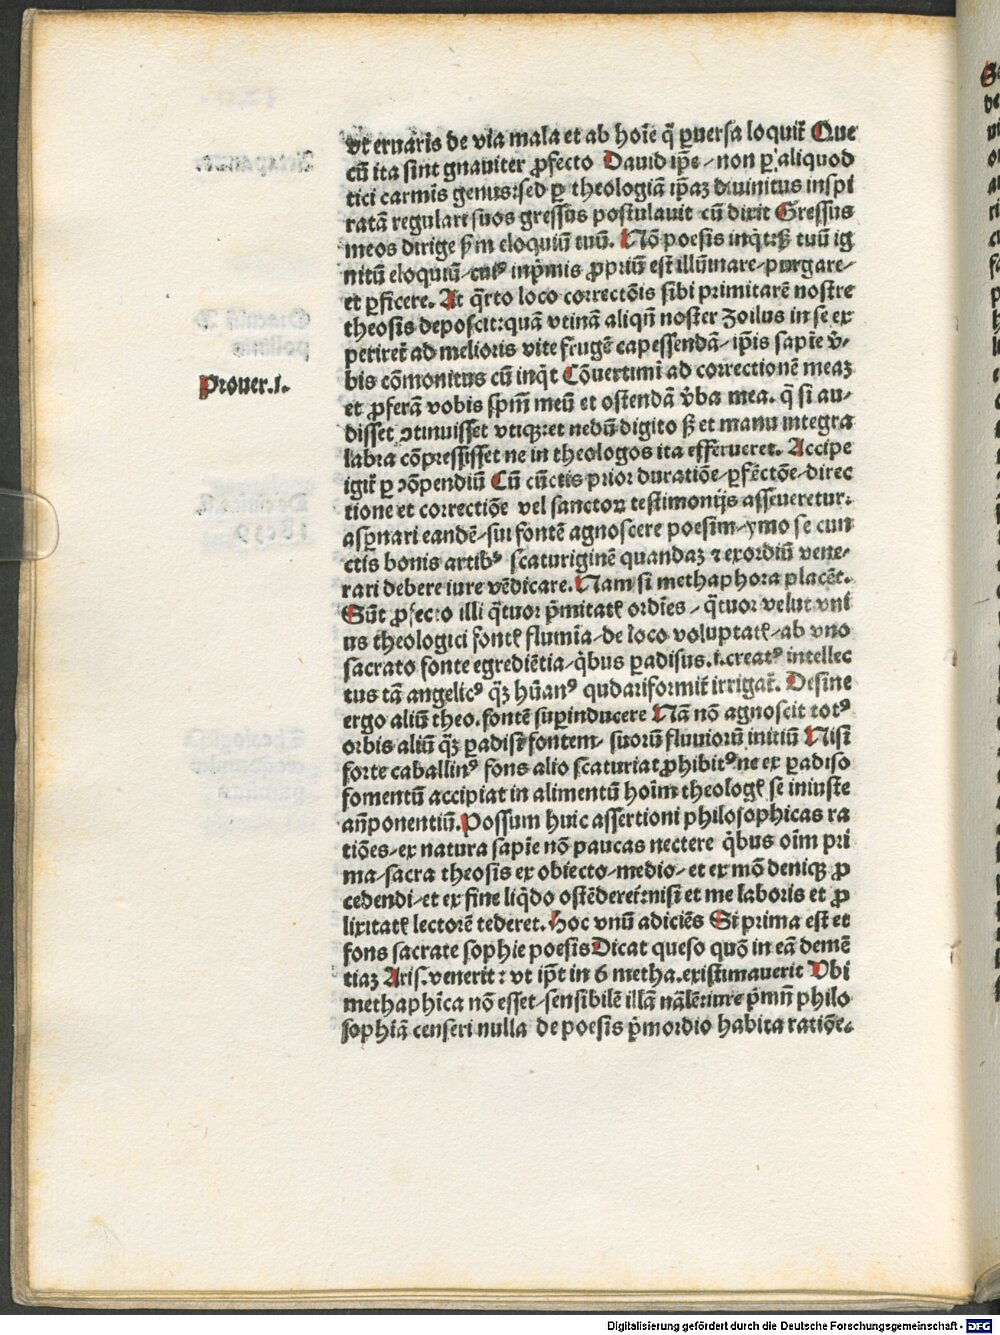 vt eruaris de via mala et ab hoīe q̄ ꝑuersa loquit̄ Que
cū ita sint gnauiter ꝓfecto Dauid ip̄e / non ꝑ aliquod
tici carmīs genus: sed ꝑ theologiā ip̄aꝫ diuinitus inspi
ratā regulari suos gressus postulauit cū dixit Gressus
meos dirige ẜm eloquiū tuū. Nō poesis inq̇t: ꝫ tuū ig
nitū eloquiū / cuiꝰ inp̄mis ꝓpriū est illūinare / purgare /
et ꝑficere. At q̄rto loco correctōis sibi primitarē nostre
theosis deposcit: quā vtinā aliqn̄ noster Zoilus in se ex
periret̄ ad melioris vite frugē capessendā / ip̄is sapīe v̄-
Prouer.1.
bis cōmonitus cū inq̇t Cōuertimī ad correctionē meaꝫ
et ꝓferā vobis spm̄ meū et ostendā v̄ba mea. q̄ si au-
disset ꝯtinuisset vtiqꝫ: et nedū digito ꝫ et manu integra
labra cōpressisset ne in theologos ita efferueret. Accipe
igit̄ ꝑ ꝯōpendiū Cū cūctis prior duratiōe / ꝑfectōe / direc
tione et correctiōe vel sanctoꝝ testimonijs asseueretur:
asꝑnari eandē / sui fontē agnoscere poesim / ymo se cun
ctis bonis artibꝰ scaturiginē quandaꝫ ⁊ exordiū vene-
rari debere iure vēdicare. Nam si methaphora placēt.
Sūt ꝓfecto illi q̄tuor p̄mitatꝭ ordīes / q̄tuor velut vni
us theologici fontꝭ flumīa / de loco voluptatꝭ / ab vno
sacrato fonte egrediētia / q̇bus ꝑadisus .i. creatꝰ intellec
tus tā angelicꝰ q̄ꝫ hūanꝰ qudariformit̄ irrigat̄. Desine
ergo aliū theo. fontē suꝑinducere Nā nō agnoscit totꝰ
orbis aliū q̄ꝫ ꝑadisi fontem / suorū fluuiorū initiū Nisi
forte caballinꝰ fons alio scaturiat ꝓhibitꝰ ne ex ꝑadiso
fomentū accipiat in alimentū hoīm theologꝭ se iniuste
an̄ponentiū. Possum huic assertioni philosophicas ra
tiōes / ex natura sapīe nō paucas nectere q̇bus oīm pri
ma / sacra theosis ex obiecto / medio / et ex mō deniqꝫ ꝓ
cedendi / et ex fine liq̇do ostēderet̄: nisi et me laboris et ꝓ
lixitatꝭ lectorē tederet. Hoc vnū adiciēs Si prima est et
fons sacrate sophie poesis Dicat queso quō in eā demē
tiaꝫ Aris. venerit: vt ip̄t in 6 metha. existimauerit Vbi
methaph̄ica nō esset / sensibilē illā nāleꝫ: iure p̄mn̄ philo
sophiā censeri nulla de poesis p̄mordio habita ratiōe.
Digitalisierung gefördert durch die Deutsche Forschungsgemeinschaft - DFG